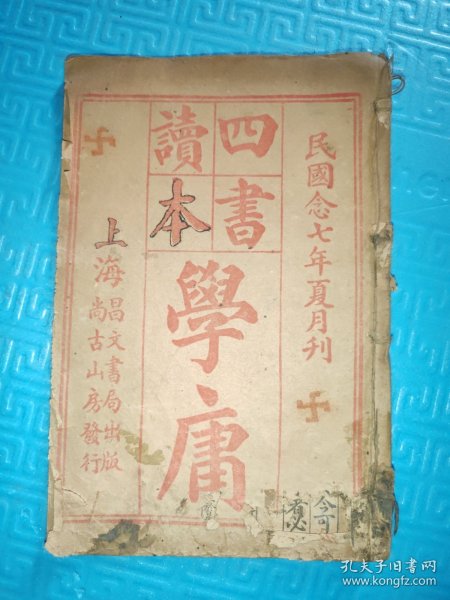 民國念七年夏月刊
四書
讀本
學庸
上海
昌文書局出版
尚古山房發行
今可
孔夫子旧书网
www.kongfz.com